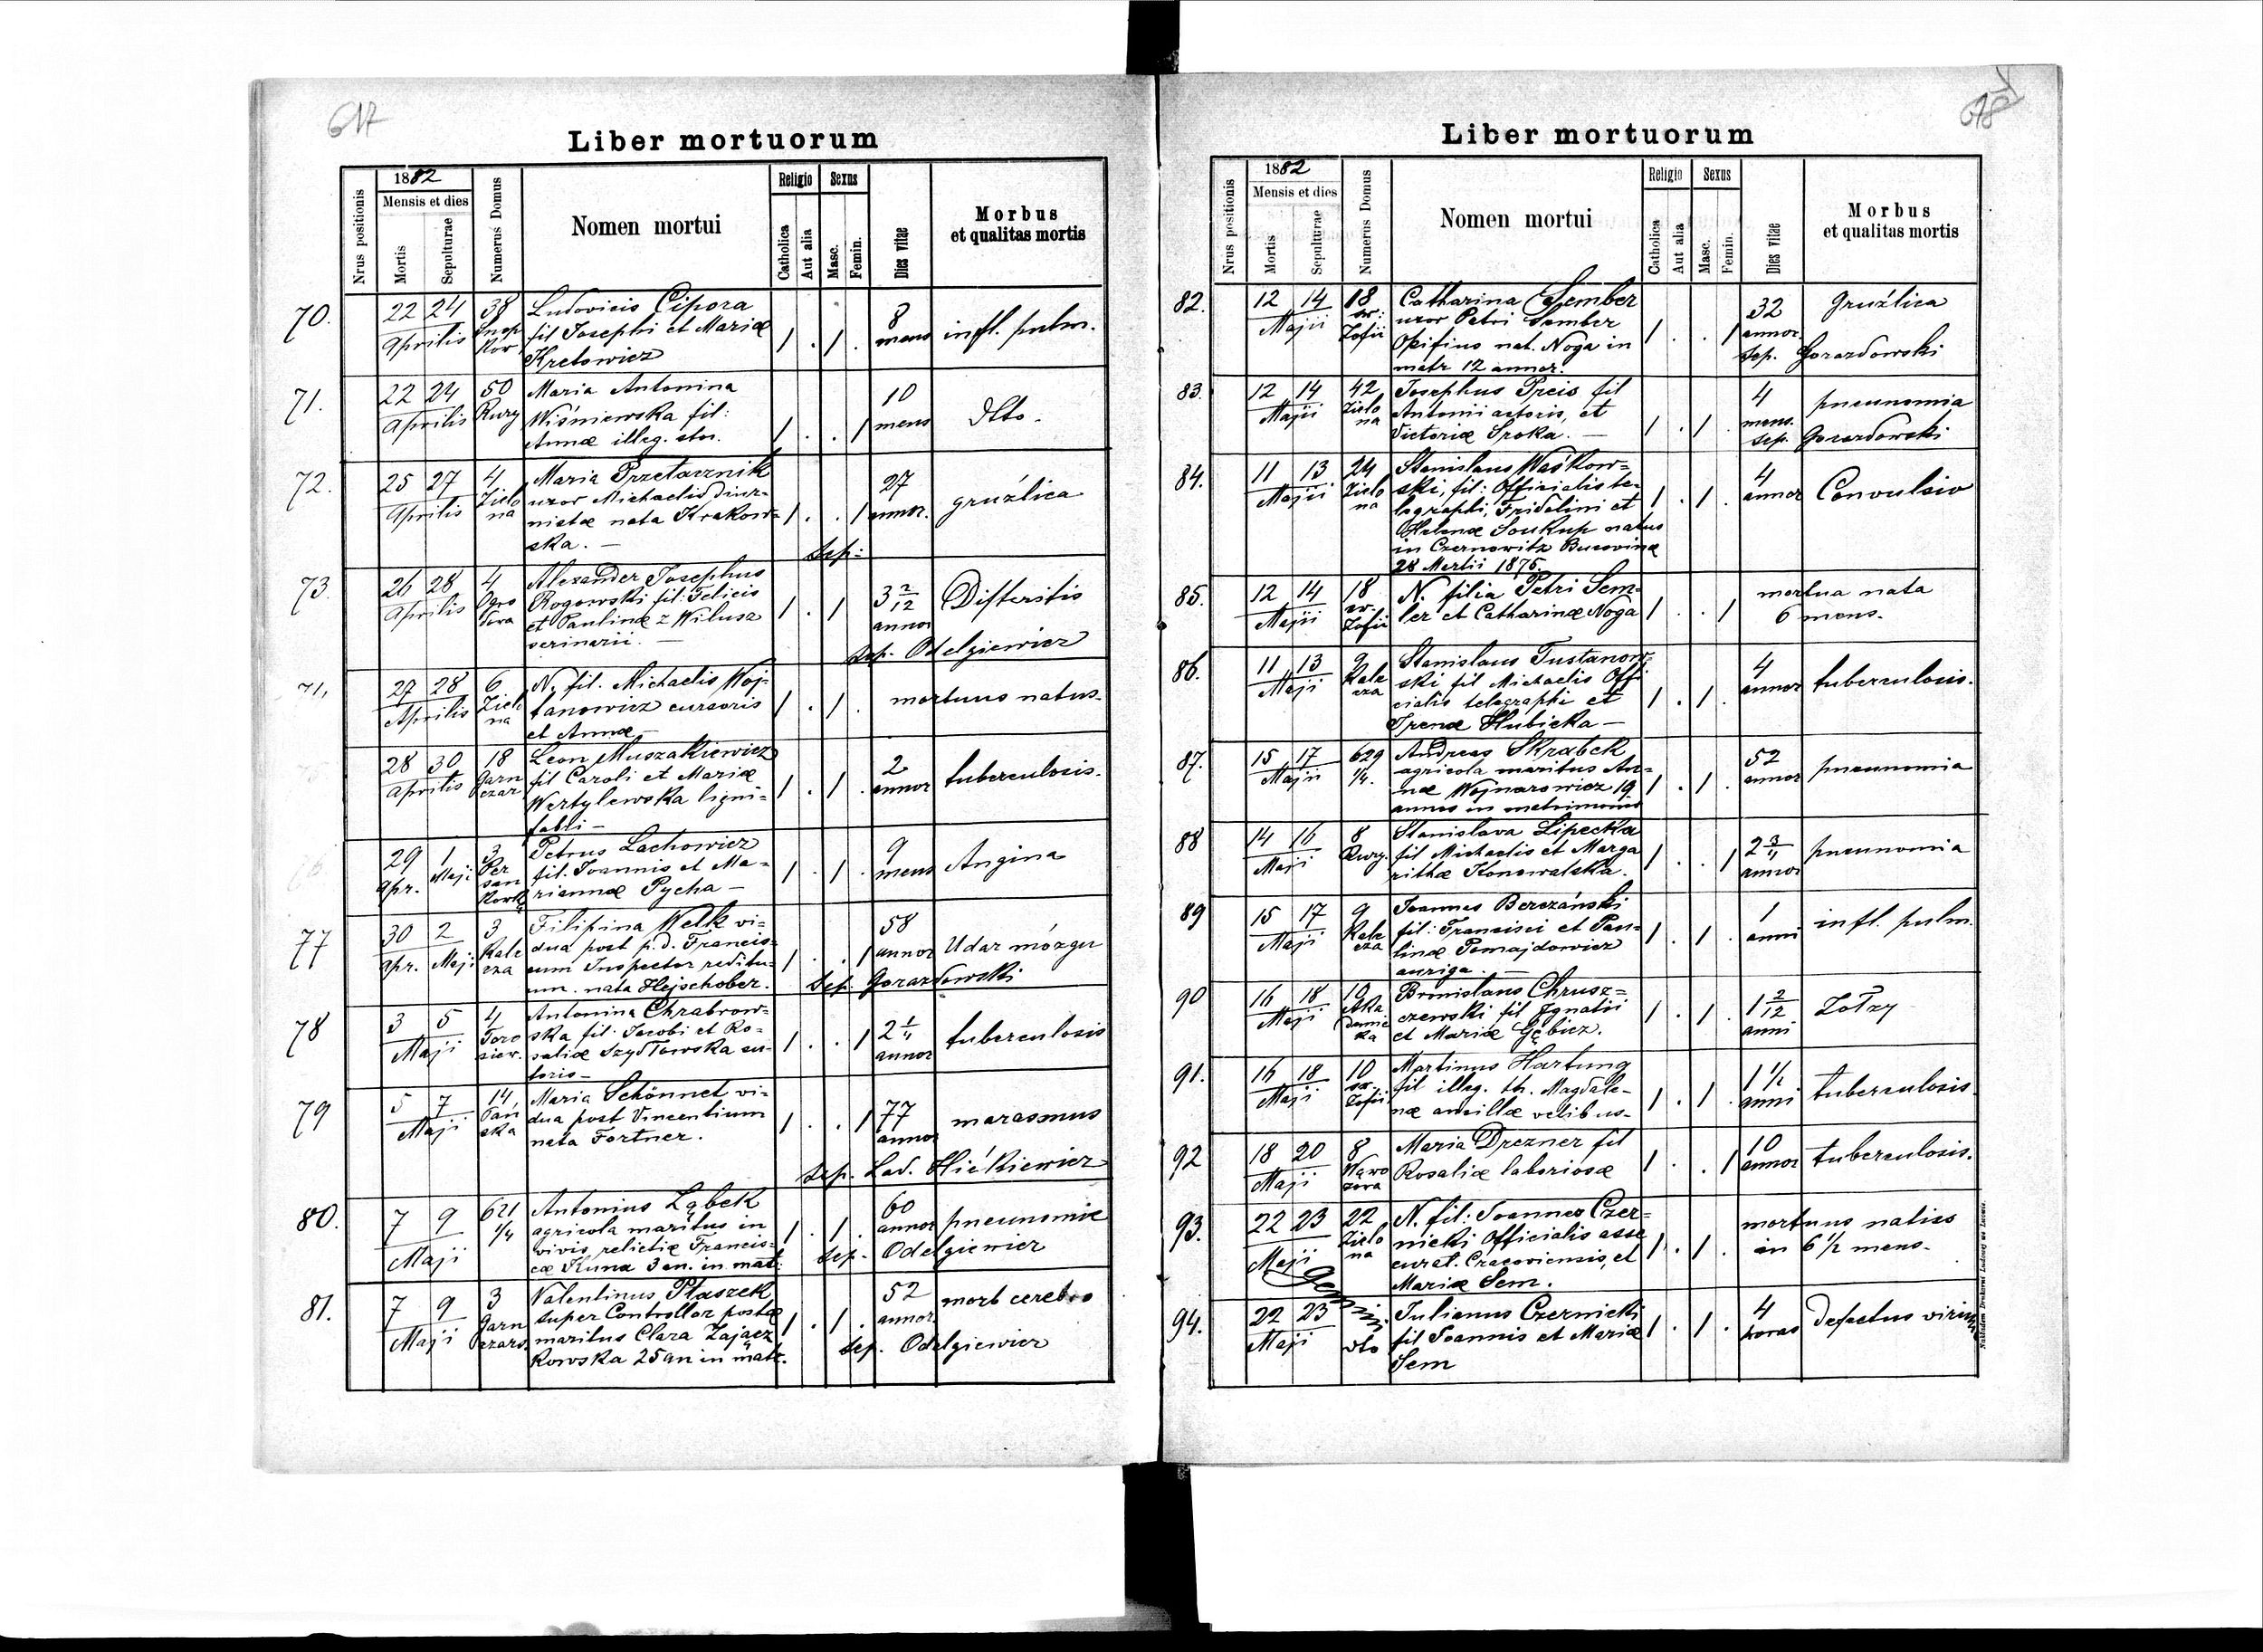 617
Liber mortuorum
Nrus positionis
1882
Mensis et dies
Mortis
Sepulturae
Numerus Domus
Nomen mortui
Religio
Catholica
Aut alia
Sexus
Masc.
Femin.
Dies vitae
Morbus
et qualitas mortis
70.
22 24
Aprilis
38
Ludovicis Cipora
fil Josephi et Mariæ
Kretowicz
1 . 1 .
8
mens
infl. pulm.
71.
22 24
Aprilis
50
Rury
Maria Antonina
Wiśniewska fil:
Annæ illeg. thr.
1 . . 1
10
mens
dtto.
72.
25 27
Aprilis
4
Zielo
na
Maria Przetacznik
uxor Michaelis diur-
nistæ nata Krakow-
ska. —
1 . . 1
27
annor.
gruźlica
Sep:
73.
26 28
Aprilis
4
Ogro
dowa
Alexander Josephus
Rogowski fil: Felicis
et Paulinæ z Wilusz
serinarii. —
1 . 1
3 2/12
annor
Difteritis
sep. Odelgiewicz
27 28
Aprilis
6
Zielo
na
N. fil. Michaelis Woj-
tanowicz cursoris
et Annæ —
1 . 1 .
mortuus natus.
28 30
Aprilis
18
Garn
czar
Leon Muszakiewicz
fil Caroli et Mariæ
Wertylewska ligni-
fabli —
1 . 1 .
2
annor
tuberculosis.
29 1
Apr. Maji
3
Per
san
kowk
Petrus Lachowicz
fil. Joannis et Ma-
riannæ Pycha —
1 . 1 .
9
mens
Angina
77
30 2
Apr. Maji
3
Kale
cza
Filipina Welk vi-
dua post p. d. Francis-
cum Inspector reditu-
um. nata Hejschober.
1 . . 1
58
annor
Udar mózgu
Sep. Gorazdowski
78
3 5
Maji
4
Toro
siew.
Antonina Chrabrow-
ska fil: Jacobi et Ro-
saliæ Szydłowska su-
toris —
1 . . 1
2 1/4
annor
tuberculosis
79
5 7
Maji
14
Pań
ska
Maria Schönnet vi-
dua post Vincentium
nata Fortner.
1 . . 1
77
annor
marasmus
sep. Lad. Hićkiewicz
80.
7 9
Maji
621
1/4
Antonius Ząbek
agricola maritus in
vivis relictæ Francis-
cæ Kuna 3 an. in mat:
1 . 1 .
60
annor
pneunomie
sep. Odelgiewicz
81.
7 9
Maji
3
Garn
czars.
Valentinus Ptaszek
super Controllor postæ
maritus Clara Zającz
kowska 25 an in matr.
1 . 1 .
52
annor.
morb cerebro
sep. Odelgiewicz
678
Liber mortuorum
Nrus positionis
1882
Mensis et dies
Mortis
Sepulturae
Numerus Domus
Nomen mortui
Religio
Catholica
Aut alia
Sexus
Masc.
Femin.
Dies vitae
Morbus
et qualitas mortis
82.
12 14
Majii
18
św:
Zofii
Catharina Sember
uxor Petri Sember
Opifius nat. Noga in
matr 12 annor.
1 . . 1
32
annor.
Gruźlica
Sep. Gorazdowski
83.
12 14
Majii
42
Zielo
na
Josephus Preis fil
Antonii actoris, et
Victoriæ Sroka. —
1 . 1 .
4
mens.
pneunomia
sep. Gorazdowski
84.
11 13
Majii
24
Zielo
na
Stanislaus Waśkow-
ski, fil: Officialis te-
legraphi, Fridolini et
Helenæ Soukup natus
in Czernowitz Bucovinæ
28 Martii 1875.
1 . 1 .
4
annor
Convulsio
85.
12 14
Majii
18
św.
Zofii
N. filia Petri Sem-
ler et Catharinæ Noga
1 . . 1
mortua nata
6 mens.
86.
11 13
Maji
9
Kale
cza
Stanislaus Tustanow-
ski fil Michaelis Offi
cialis telegraphi et
Irenæ Hubicka —
1 . 1 .
4
annor
tuberculosis.
87.
15 17
Majii
629
1/4.
Andreas Skrabek
agricola maritus An-
næ Wojnarowicz 19
annos in matrimonio
1 . 1 .
52
annor
pneunomia
88
14 16
Maji
8
Rury.
Stanislava Lipecka
fil Michaelis et Marga
rithæ Konowalska.
1 . . 1
2 3/4
annor
pneunomia
89
15 17
Maji
9
Kale
cza
Joannes Berezański
fil: Francisci et Pau-
linæ Pomajdowicz
auriga. —
1 . 1 .
1
anni
infl. pulm.
90
16 18
Maji
10
Aka
demic
ka
Bronislaus Chrusz-
czewski fil Ignatii
et Mariæ Gębicz.
1 . 1 .
1 2/12
anni
Zołzy
91.
16 18
Maji
10
św.
Zofii
Martinus Hartung
fil illeg. th. Magdale-
næ ancillæ velibus-
1 . 1 .
1 1/2
anni
tuberculosis
92
18 20
Maji
8
Wąwo
zowa
Maria Drezner fil
Rosaliæ laboriosæ
1 . . 1
10
annor
tuberculosis.
93.
22 23
Maji
22
Zielo
na
N. fil: Joannes Czer-
nicki Officialis asse
curat. Cracoviensis, et
Mariæ Sem.
1 . 1 .
mortuus natus
in 6 1/2 mens.
Gemini
94.
22 23
Maji
dto
Julianus Czernicki
fil Joannis et Mariæ
Sem
1 . 1 .
4
horas
defectus virium
Nakładem Drukarni Ludowej we Lwowie.